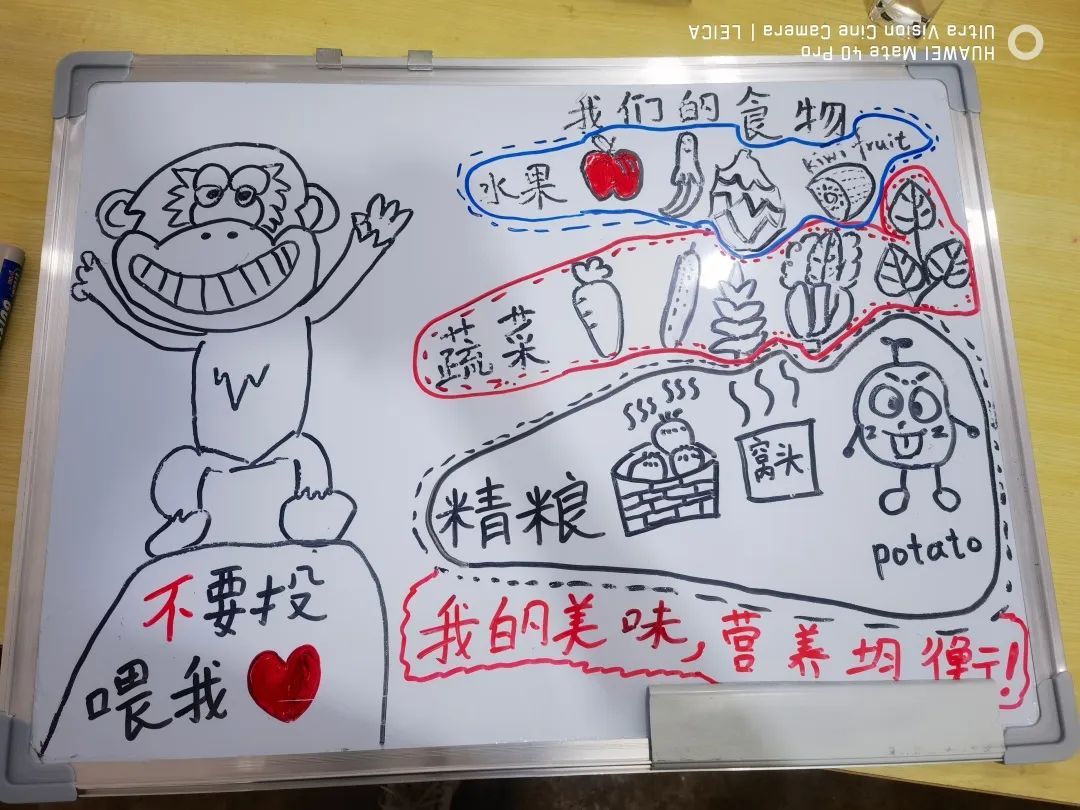 我们的食物
水果
kiwi fruit
蔬菜
精粮
窝头
potato
我的美味,营养均衡!
不要投
喂我
HUAWEI Mate 40 Pro
Ultra Vision Cine Camera | LEICA